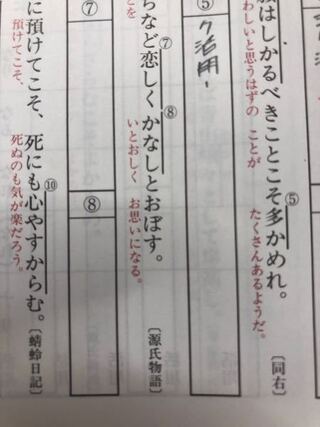 はしかるべきことこそ多かめれ。〔同右〕
⑤
わしいと思うはずの ことが たくさんあるようだ。
⑤
ク活用
らなど恋しくかなしとおぼす。〔源氏物語〕
⑦ ⑧
とを いとおしく お思いになる。
⑦
⑧
に預けてこそ、死にも心やすからむ。〔蜻蛉日記〕
⑩
預けてこそ、 死ぬのも気が楽だろう。